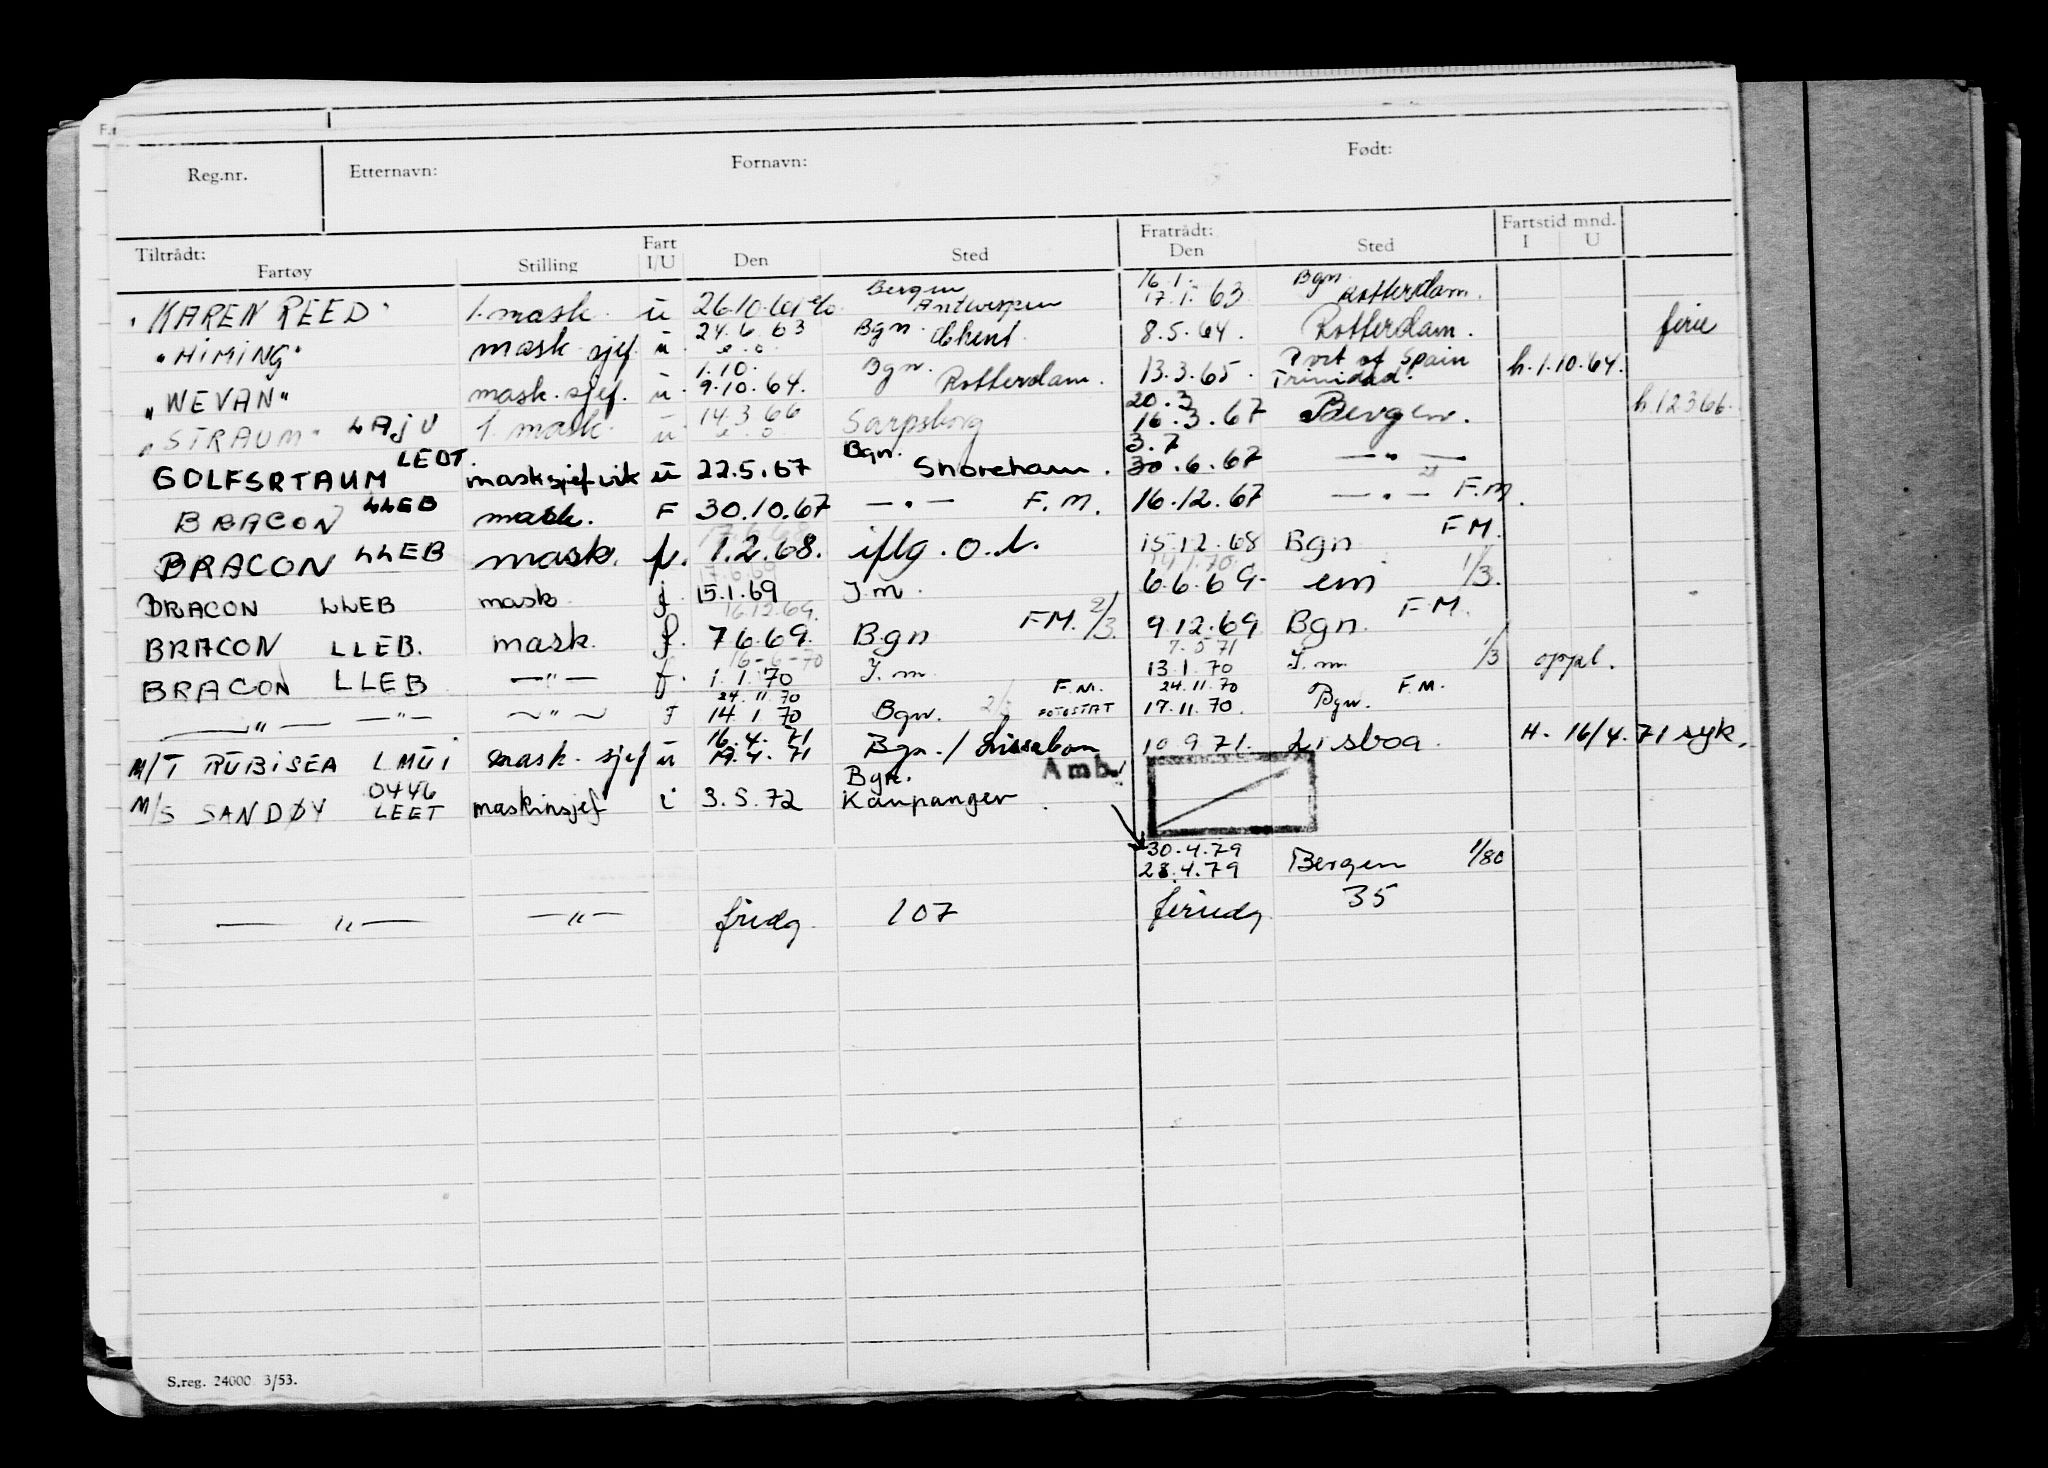 Reg.nr. Etternavn: Fornavn: Født:
Tiltrådt: Fratrådt: Fartstid mnd.
Fartøy Stilling Fart I/U Den Sted Den Sted I U
Bergen 16.1. Bgn.
"KAREN REED" 1. mask. u 26.10.61 Antwerpen 17.1.63 Rotterdam.
24.6.63 Bgn.
"HIMING" mask. sjef. u. Ghent. 8.5.64. Rotterdam. ferie
1.10. Bgn. Port of Spain
"WEVAN" mask. sjef. u. 9.10.64. Rotterdam. 13.3.65. Trinidad. h.1.10.64.
14.3.66 20.3
"STRAUM" LAJU 1. mask. u Sarpsborg 16.3.67 Bergen. h.12366.
LEDT Bgn. 3.7
GOLFSRTAUM masksjef vik u 22.5.67 Shoreham. 30.6.67 — " —
BRACON LLEB mask. F 30.10.67 — " — F.M. 16.12.67 — " — F.M.
BRACON LLEB mask. f. 1.2.68. iflg. o.l. 15.12.68 Bgn FM.
BRACON LLEB mask. f. 15.1.69 J.m. 6.6.69- em 1/3.
16.12.69.
BRACON LLEB. mask. f. 7 6.69. Bgn FM. 2/3. 9.12.69 Bgn. F.M.
16-6-70 7.5.71
BRACON LLEB — " — f. 1.1.70 J.m. 13.1.70 J.m. 1/3 oppl.
24.11.70 F.M. 24.11.70 F.M.
— " — — " — — " — F 14.1.70 Bgn. FOTOSTAT 17.11.70. Bgn.
16.4.71
M/T RUBISEA LMUI mask. sjef u 19.4.71 Bgn. / Lissabon 10.9.71. Lisboa. H. 16/4.71 syk.
0446 Bgn. Amb.
M/S SANDØY LEET maskinsjef i 3.5.72 Kaupanger.
30.4.79
28.4.79 Bergen 1/80
— " — — " — fridg. 107 feriedg 35
S.reg. 24000 3/53.